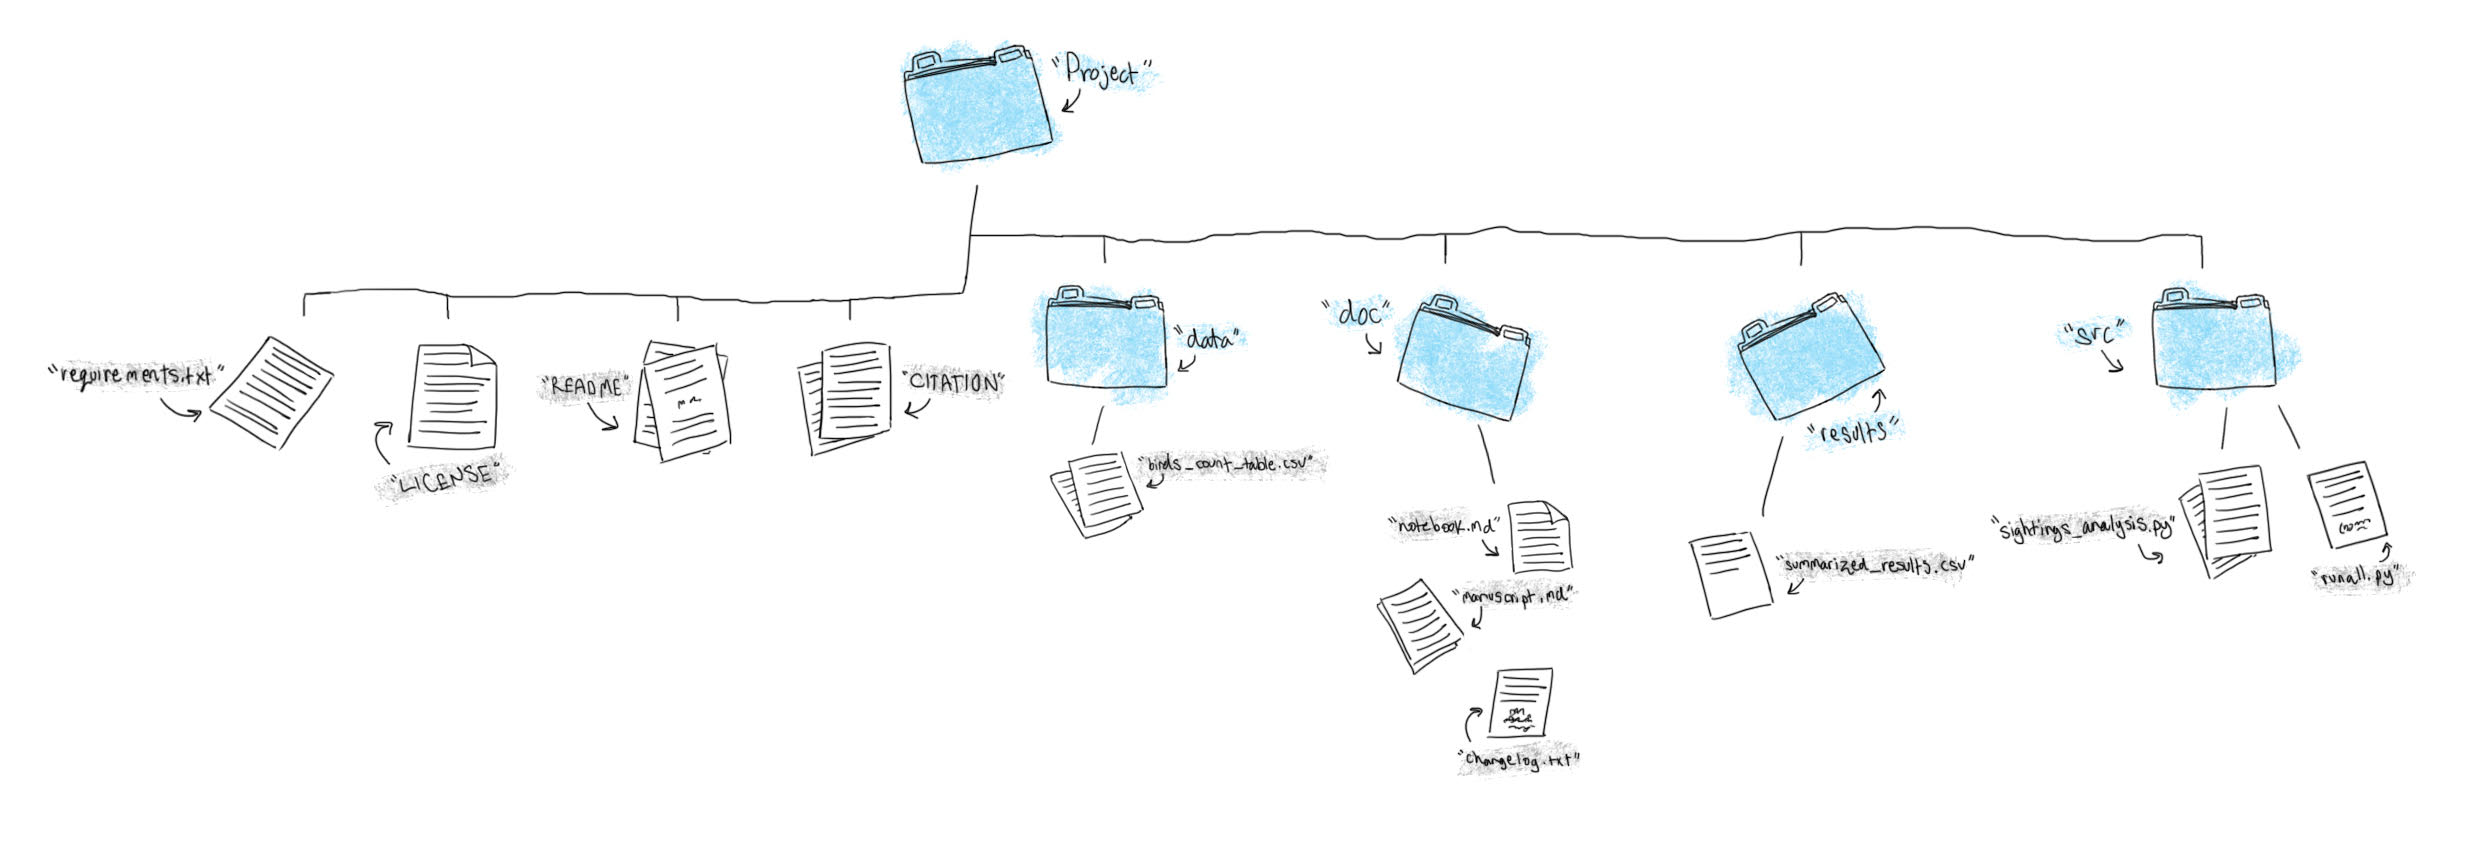 "Project"
"requirements.txt"
"LICENSE"
"README"
"CITATION"
"data"
"birds_count_table.csv"
"doc"
"notebook.md"
"manuscript.md"
"changelog.txt"
"results"
"summarized_results.csv"
"src"
"sightings_analysis.py"
"runall.py"